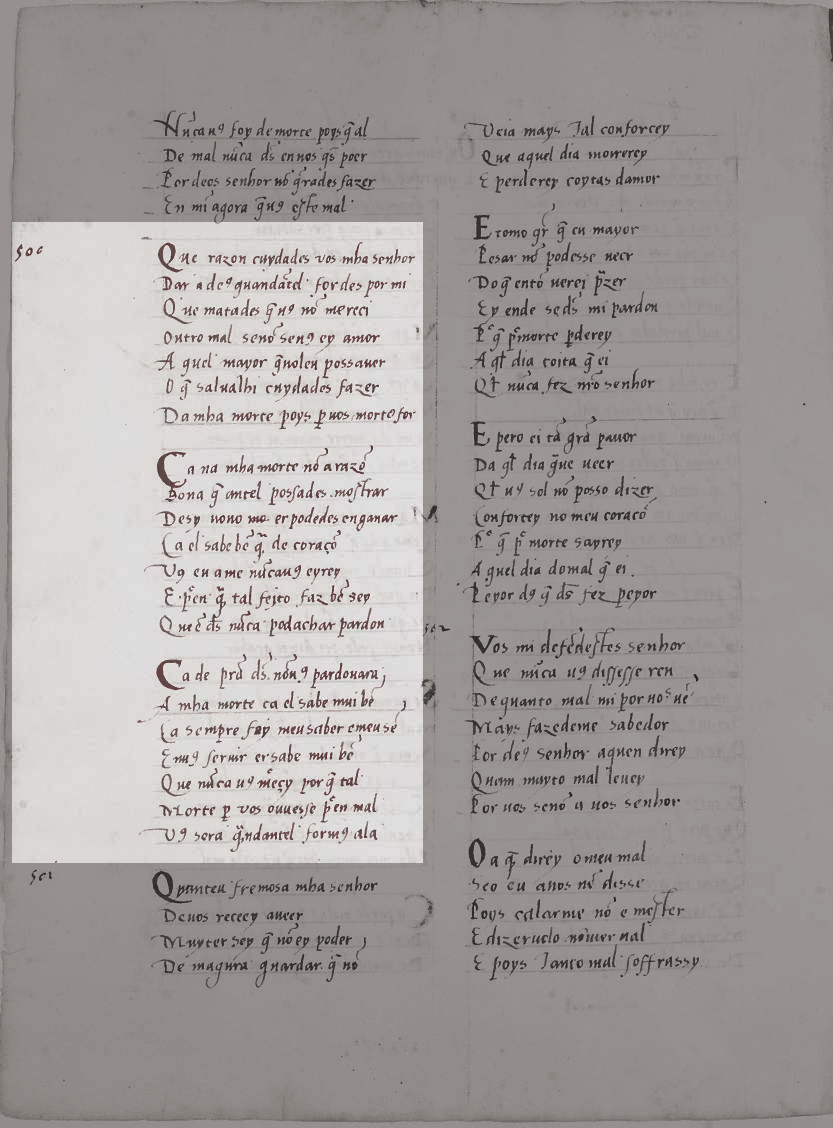 Nũcauꝯ foy de morte poysq̃ al
De mal nũca ds̃ en uos q̃s poer
Por deos senhor nõ q̃rades fazer
En mi agora q̃uꝯ este mal
500
Que razon cuydades vos mha senhor
Dar a deꝯ quandãtel fordes por mi
Que matades q̃uꝯ nõ mereci
Outro mal senõ senꝯ ey amor
Aquel mayor q̃uoleu possauer
O q̃ salualhi cuydades fazer
Da mha morte poys ꝑ uos morto for
Ca na mha morte nõ a razõ
Bona q̃ antel possades mostrar
Desy nono er podedes enganar
Ca el sabe bẽ q̃ de coraçõ
Vꝯ eu ame nũcauꝯ eyrey
E pͤen q̃ tal feito faz bẽ sey
Que ẽ ds̃ nũca podachar pardon
Ca de prã ds̃ nõuꝯ pardouara
A mha morte ca el sabe mui bẽ
Ca sempre foy meu saber e meu sẽ
En uꝯ seruir er sabe mui bẽ
Que nũca uꝯ m̃eçy por q̃ tal
Morte ꝑ vos ouuesse pͤen mal
Vꝯ sera q̃ndantel formꝯ ala
501
Quanteu fremosa mha senhor
De uos receey aueer
Muyter sey q̃ nõ ey poder
De magura guardar q̃ nõ
Veia mays Tal conforcey
Que aquel dia morrerey
E perderey coytas damor
E como q̃r q̃ eu mayor
Pesar nõ podesse ueer
Do q̃ entõ uerei p̃zer
Ey ende se ds̃ mi pardon
Pͦ q̃ pͤ morte ꝑderey
Aql̃ dia coita q̃ ei
Ql̃ nũca fez nr̃o senhor
E pero ei tã grã pauor
Da ql̃ dia g̃ue ueer
Ql̃ uꝯ sol nõ posso dizer
Confortey no meu coraçõ
Pͦ q̃ pͤ morte sayrey
Aquel dia do mal q̃ ei
Peyor dꝯ q̃ ds̃ fez peyor
502
Vos mi defẽdestes senhor
Que nũca uꝯ dissesse ren
De quanto mal mi por uos uẽ
Mays fazedeme sabedor
Por deꝯ senhor aquen direy
Quam muyto mal leuey
Por uos senõ a uos senhor
Ou a q̃ direy o meu mal
Seo eu auos nõ disse
Poys calarme nõ e mester
E dizeruolo nõmer ual
E poys Tanto mal soffrassy